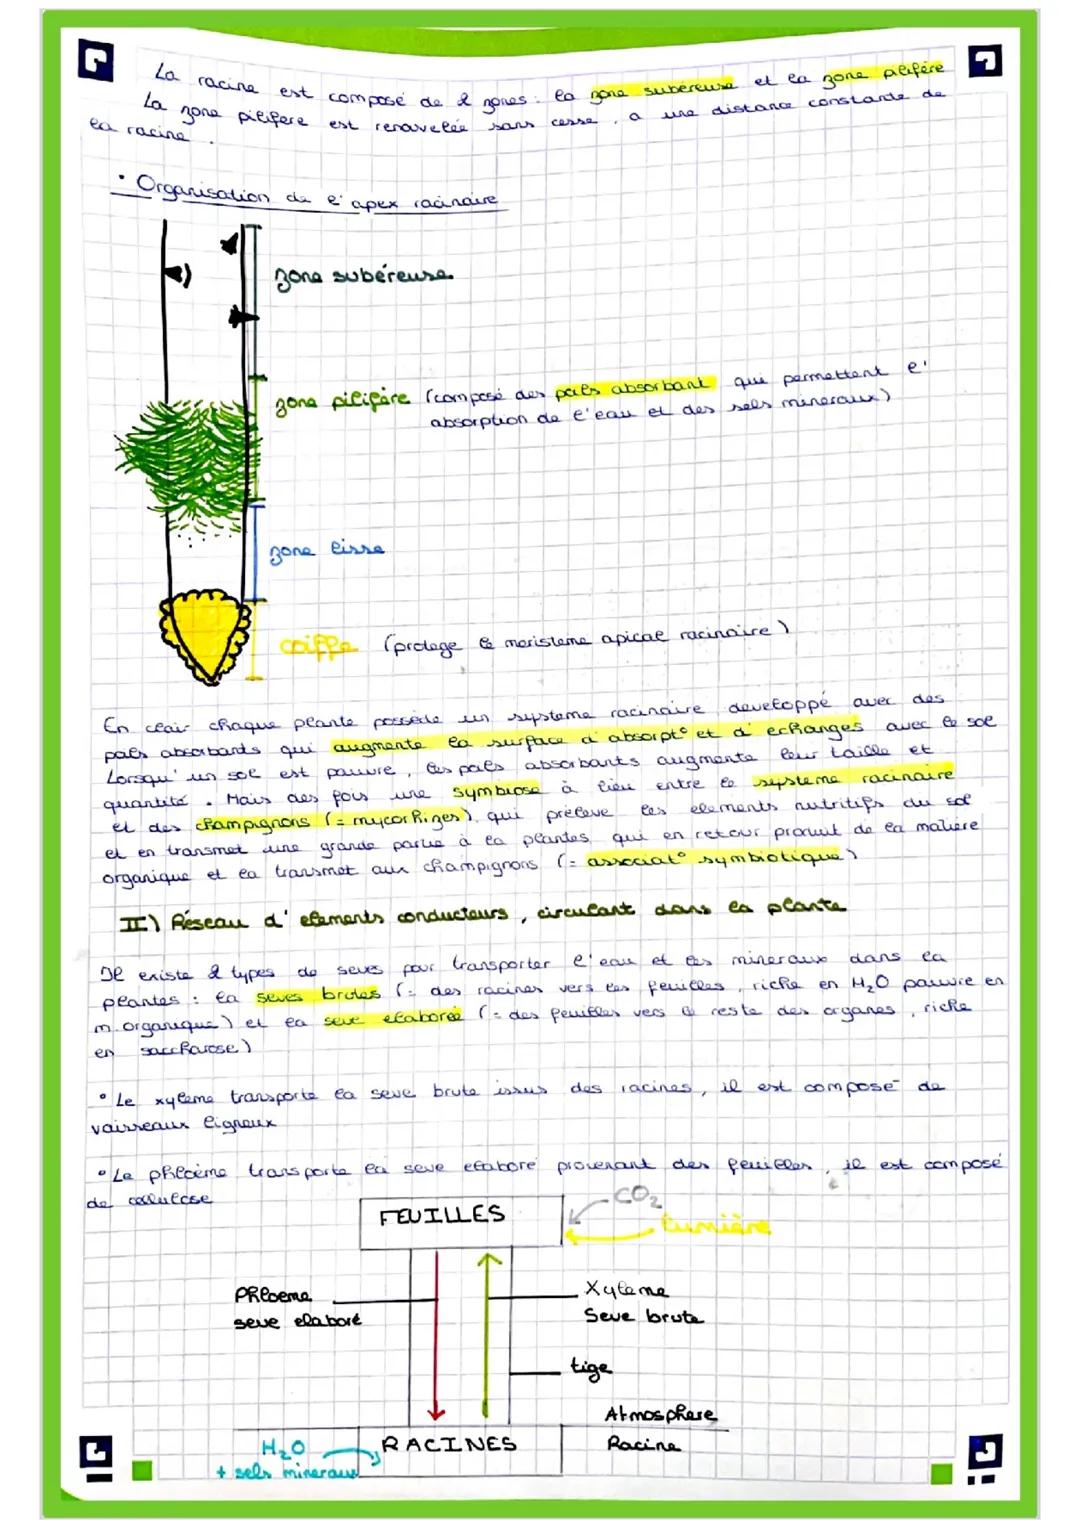 La racine est composé de 2 zones : la zone subéreuse et la zone pilifère
La zone pilifere est renouvelée sans cesse, a une distance constante de
la racine.
• Organisation de l'apex racinaire
zone subéreuse
zone pilifère (composé des poils absorbant qui permettent l'
absorption de l'eau et des sels mineraux)
zone lisse
coiffe (protege le meristeme apical racinaire)
En clair chaque plante possède un systeme racinaire developpé avec des
poils absorbants qui augmente la surface d'absorpt° et d'echanges avec le sol
Lorsqu'un sol est pauvre, les poils absorbants augmente leur taille et
quantité. Mais des fois une symbiose à lieu entre le systeme racinaire
et des champignons (= mycorhizes), qui prélève les elements nutritifs du sol
et en transmet une grande partie à la plantes, qui en retour produit de la matière
organique et la transmet aux champignons (= associat° symbiotique)
II) Réseau d'elements conducteurs, circulant dans la plante
Il existe 2 types de seves pour transporter l'eau et les mineraux dans la
plantes : la seves brutes (= des racines vers les feuilles, riche en H₂O pauvre en
m. organique) et la seve elaboreé (= des feuilles vers le reste des organes, riche
en saccharose)
• Le xyleme transporte la seve brute issus des racines, il est composé de
vaisseaux ligneux
• Le phloème transporte la seve elaboré provenant des feuilles, il est composé
de cellulose
FEUILLES
CO₂
lumière
Phloeme
seve elaboré
Xyleme
Seve brute
tige
Atmosphere
Racine
RACINES
H₂O
+ sels mineraux